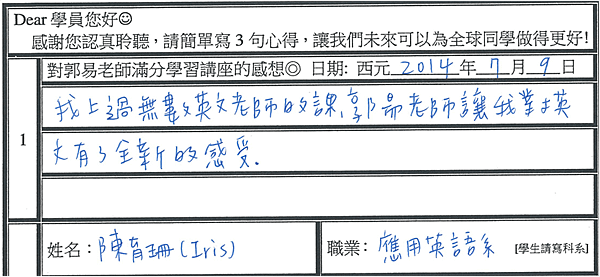 Dear 學員您好☺
感謝您認真聆聽，請簡單寫 3 句心得，讓我們未來可以為全球同學做得更好!
對郭易老師滿分學習講座的感想◎ 日期: 西元 2014 年 7 月 9 日
1
我上過無數英文老師的課,郭易老師讓我對英
文有了全新的感受.
姓名：陳育珊(Iris) 職業：應用英語系 [學生請寫科系]